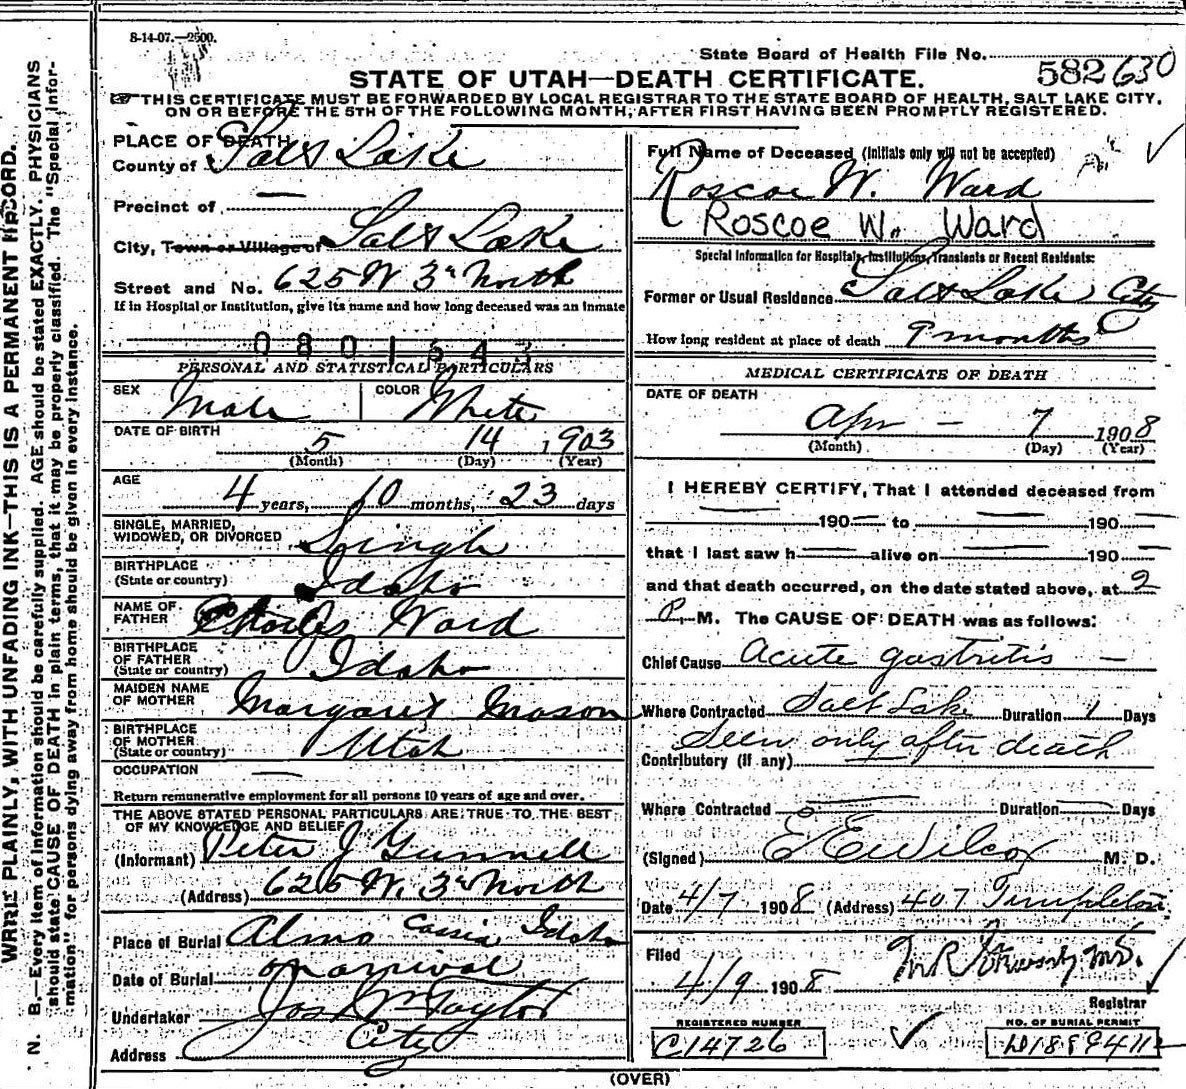 8-14-07.—2500.
State Board of Health File No.
582 630
STATE OF UTAH—DEATH CERTIFICATE.
THIS CERTIFICATE MUST BE FORWARDED BY LOCAL REGISTRAR TO THE STATE BOARD OF HEALTH, SALT LAKE CITY,
ON OR BEFORE THE 5TH OF THE FOLLOWING MONTH, AFTER FIRST HAVING BEEN PROMPTLY REGISTERED.
WRITE PLAINLY, WITH UNFADING INK—THIS IS A PERMANENT RECORD.
N. B.—Every item of information should be carefully supplied. AGE should be stated EXACTLY. PHYSICIANS
should state CAUSE OF DEATH in plain terms, that it may be properly classified. The "Special Infor-
mation" for persons dying away from home should be given in every instance.
PLACE OF DEATH
County of Salt Lake
Precinct of —
City, Town or Village of Salt Lake
Street and No. 625 W 3rd North
If in Hospital or Institution, give its name and how long deceased was an inmate
0801543
PERSONAL AND STATISTICAL PARTICULARS
SEX Male COLOR White
DATE OF BIRTH
5 14 1903
(Month) (Day) (Year)
AGE
4 years, 10 months, 23 days
SINGLE, MARRIED,
WIDOWED, OR DIVORCED Single
BIRTHPLACE
(State or country) Idaho
NAME OF
FATHER Charles Ward
BIRTHPLACE
OF FATHER
(State or country) Idaho
MAIDEN NAME
OF MOTHER Margaret Mason
BIRTHPLACE
OF MOTHER
(State or country) Utah
OCCUPATION —
Return remunerative employment for all persons 10 years of age and over.
THE ABOVE STATED PERSONAL PARTICULARS ARE TRUE TO THE BEST
OF MY KNOWLEDGE AND BELIEF
(Informant) Peter J Gunnell
(Address) 625 W. 3rd North
Place of Burial Almo Cassia Idaho
Date of Burial on arrival
Undertaker Jos Wm Taylor
Address City
Full Name of Deceased (Initials only will not be accepted)
Roscoe W. Ward
Roscoe W. Ward
Special Information for Hospitals, Institutions, Transients or Recent Residents:
Former or Usual Residence Salt Lake City
How long resident at place of death 9 months
MEDICAL CERTIFICATE OF DEATH
DATE OF DEATH
Apr — 7 1908
(Month) (Day) (Year)
I HEREBY CERTIFY, That I attended deceased from
— 190— to — 190—
that I last saw h— alive on — 190—
and that death occurred, on the date stated above, at 2
P. M. The CAUSE OF DEATH was as follows:
Chief Cause Acute gastritis —
Where Contracted Salt Lake Duration 1 Days
Seen only after death
Contributory (if any)
Where Contracted — Duration — Days
(Signed) E E Wilcox M. D.
Date 4/7 1908 (Address) 407 Templeton
Filed
4/9 1908
M.D.
Registrar
REGISTERED NUMBER
C14726
NO. OF BURIAL PERMIT
(OVER)